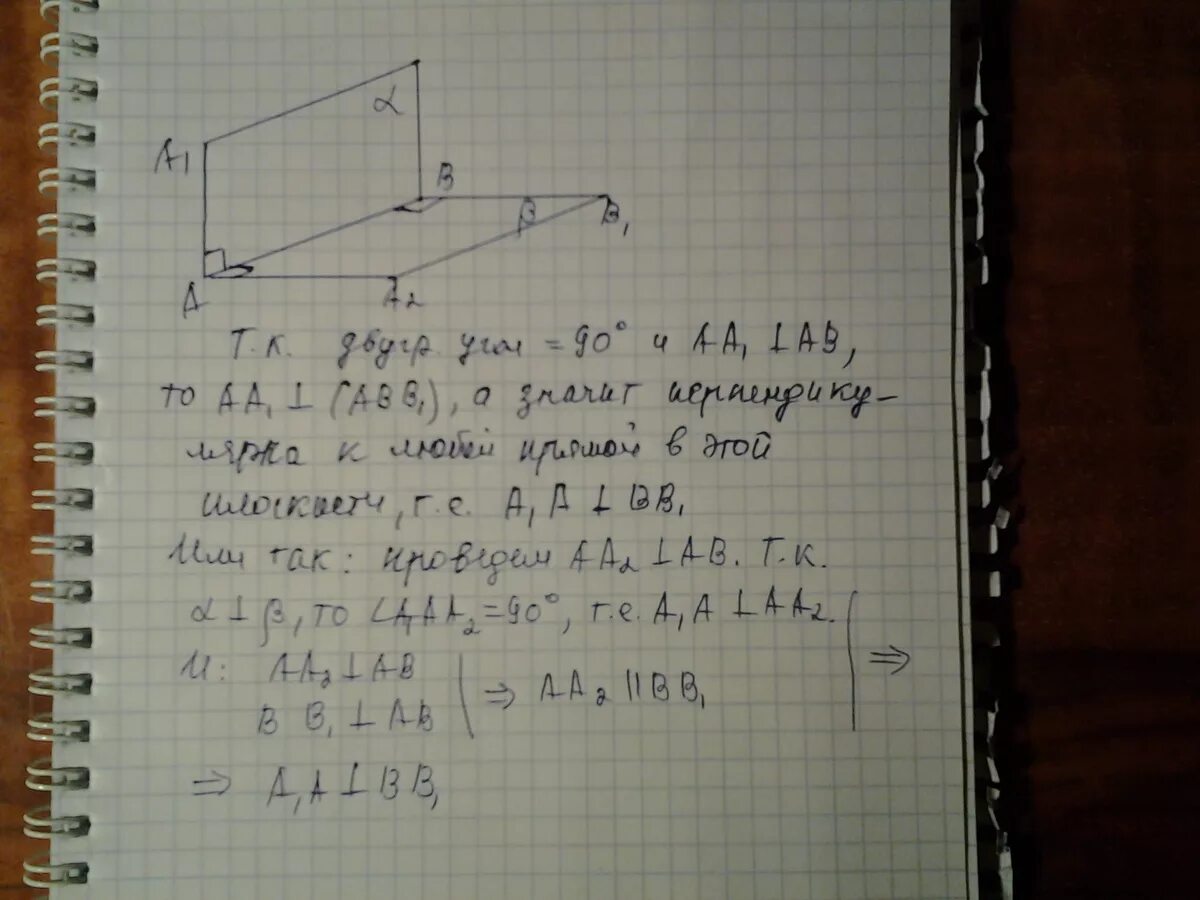 α
A₁
B
β
B₁
A
A₂
Т.к. двугр. угол = 90° и AA₁ ⊥ AB,
то AA₁ ⊥ (ABB₁), а значит перпендику-
лярна к любой прямой в этой
плоскости, т.е. A₁A ⊥ BB₁
Или так: проведем AA₂ ⊥ AB. Т.к.
α ⊥ β, то ∠A₁AA₂ = 90°, т.е. A₁A ⊥ AA₂.
И: AA₂ ⊥ AB
BB₁ ⊥ AB | ⇒ AA₂ || BB₁ | ⇒
⇒ A₁A ⊥ BB₁